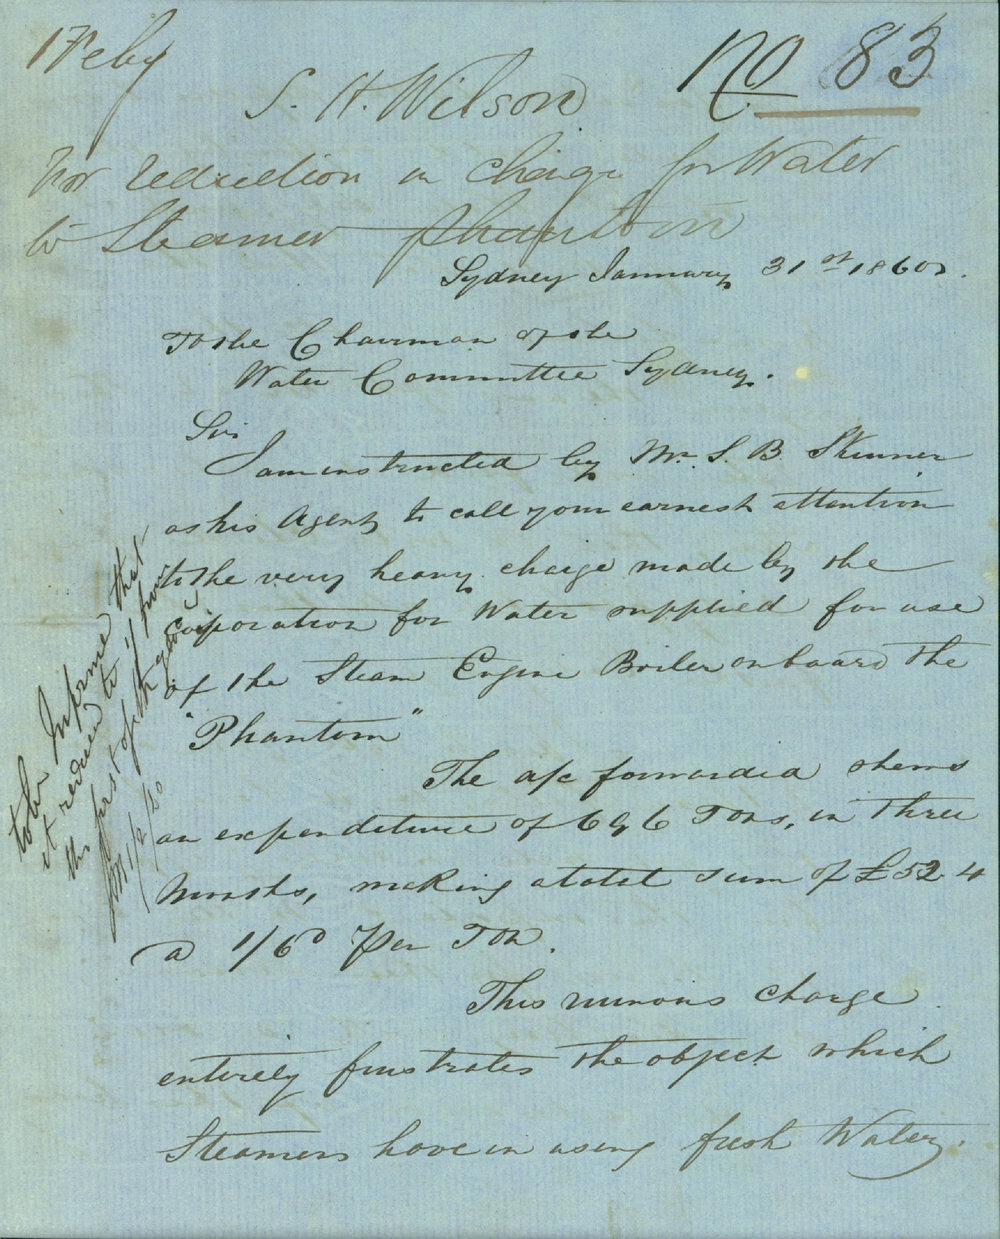 1 Feby
No 83
S. H. Wilson
For reduction in charge for Water
to Steamer Phantom
Sydney January 31st 1860
To the Chairman of the
Water Committee Sydney.
Sir
I am instructed by Mr. S. B. Skinner
as his Agent to call your earnest attention
to the very heavy charge made by the
Corporation for Water supplied for use
of the Steam Engine Boiler on board the
"Phantom"
The a/c forwarded shews
an expenditure of 696 Tons, in Three
Months, making a total sum of £52.4
a 1/6d Per Ton.
This ruinous charge
entirely frustrates the object which
Steamers have in using fresh Water.
to be Informed that
it reduced to 1/ from
the first of the
1/2/60